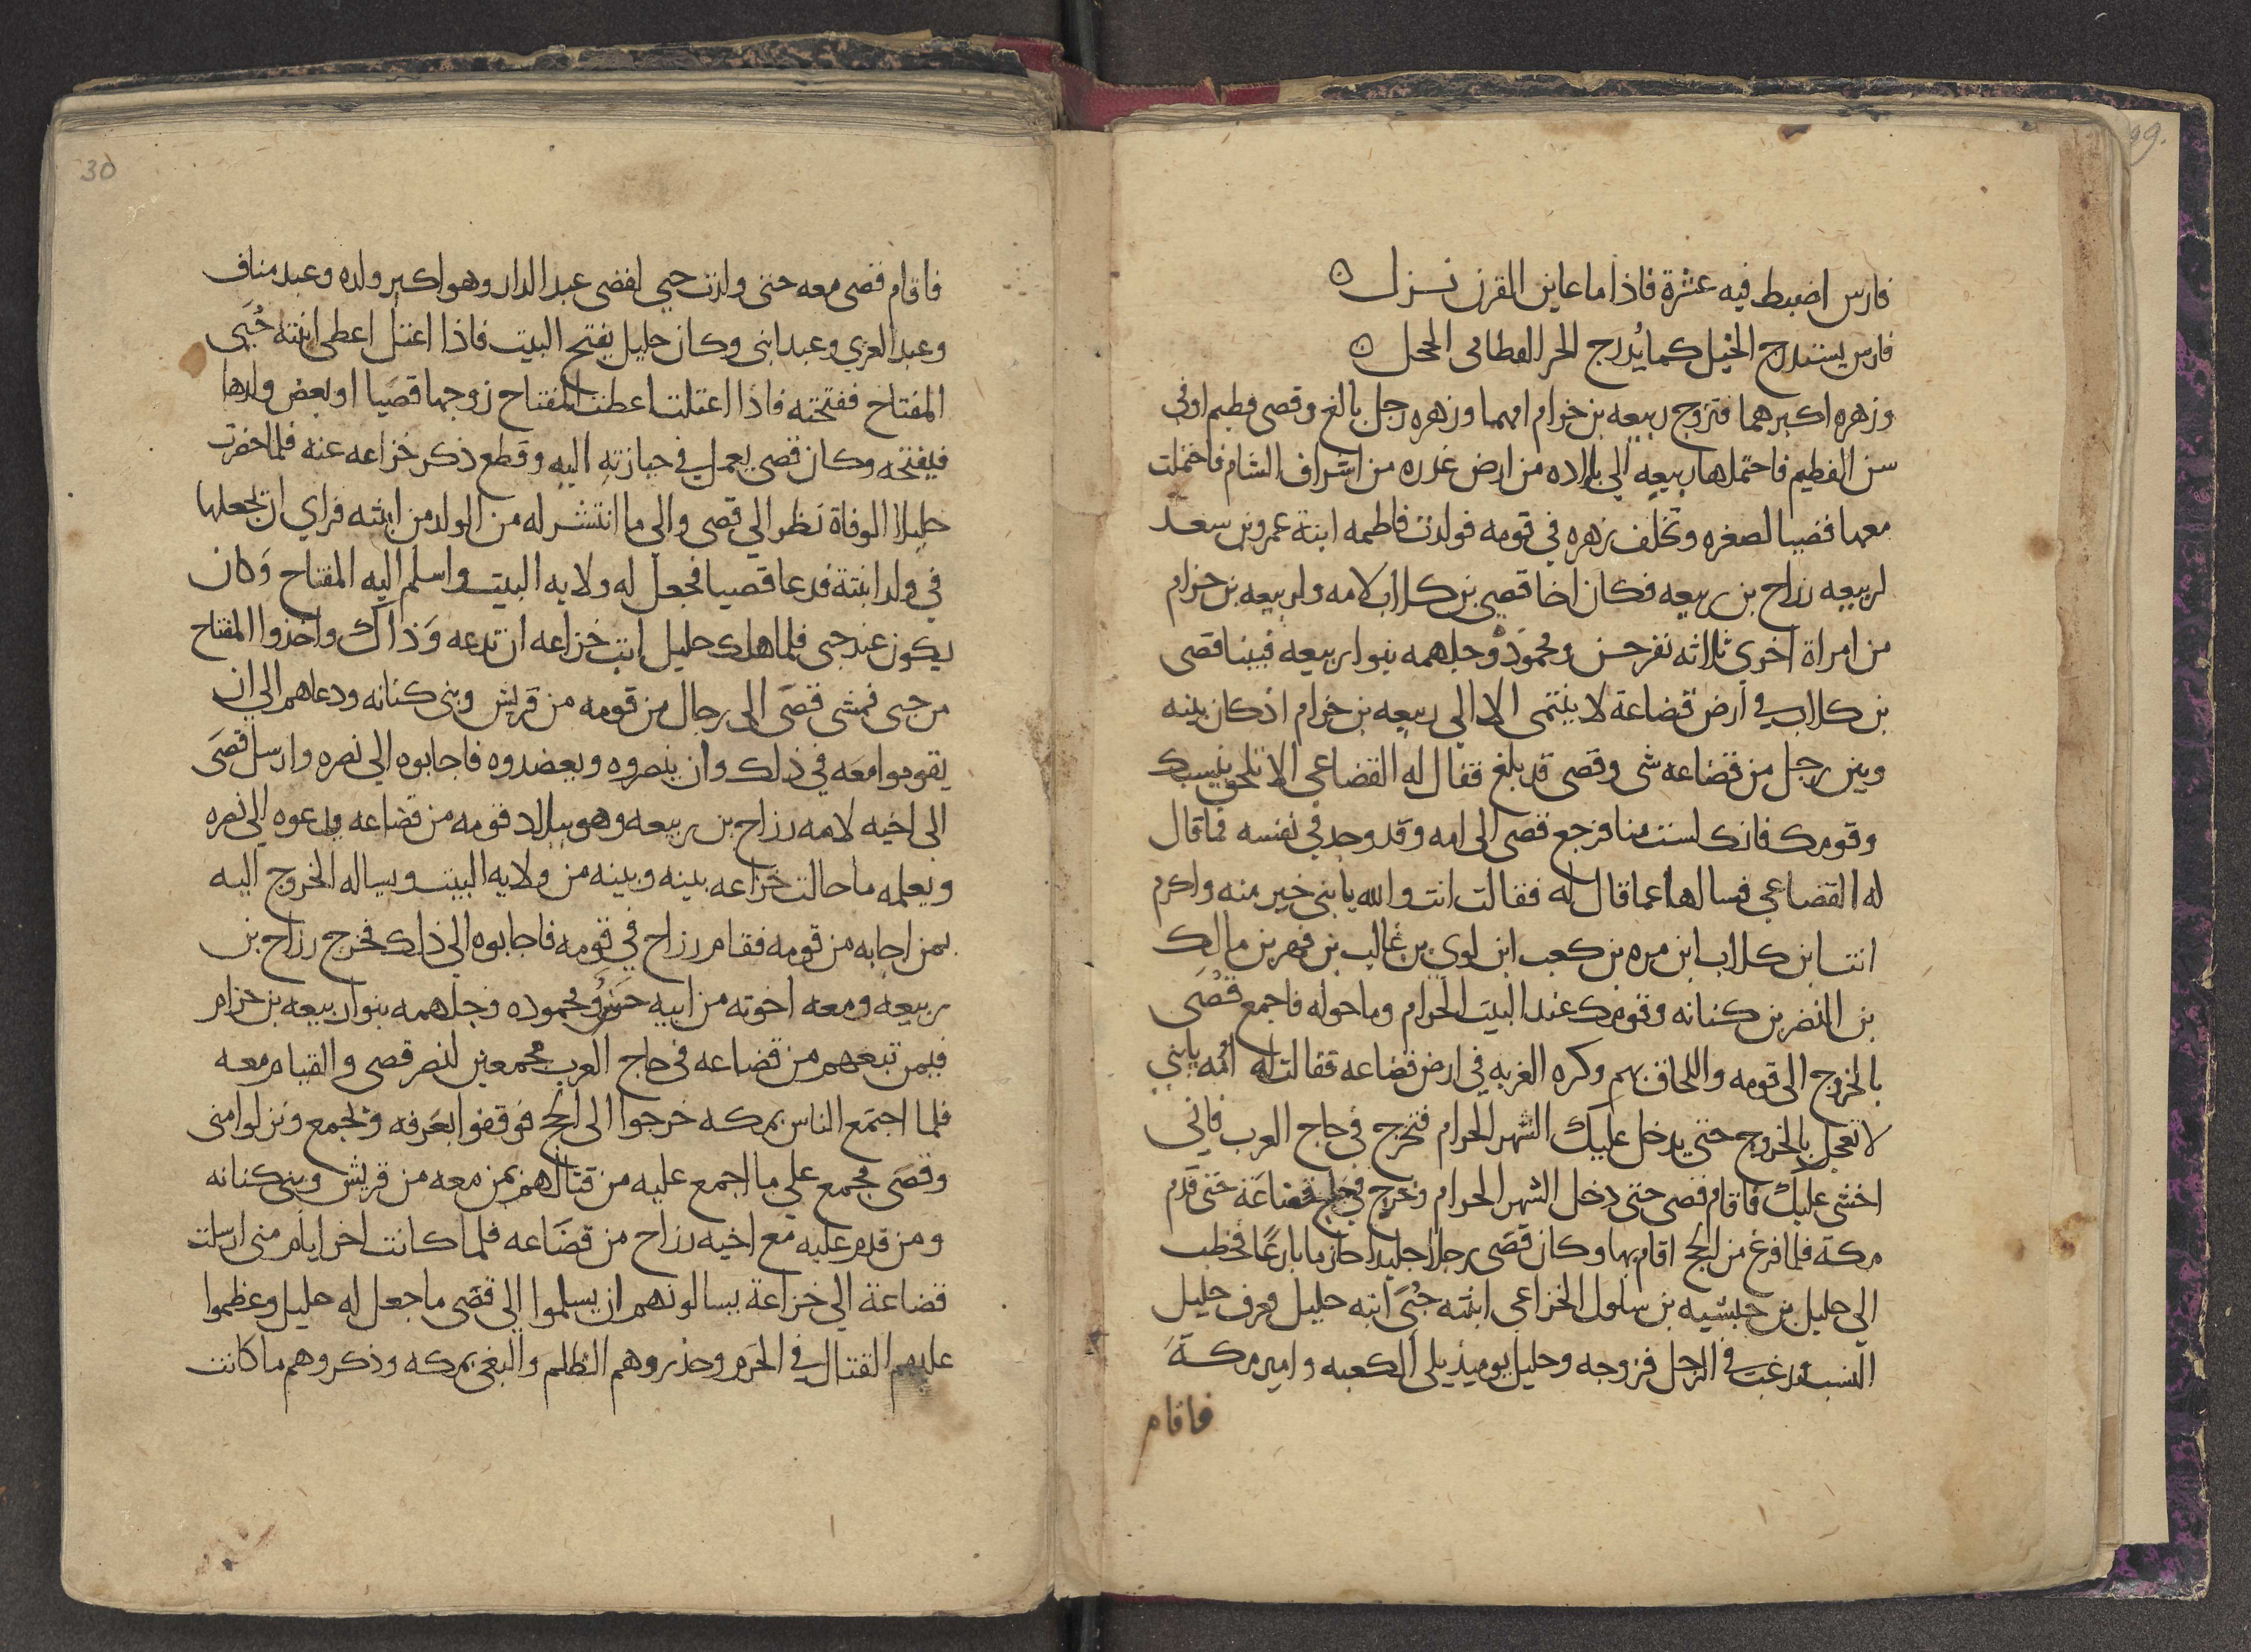 99.
فارس اضبط فيه عشرة فاذا ما عاين القرن نزل ن
فارس يستدرج الخيل كما يُدرج الحر القطامى الحجل ن
وزهره اكبرهما فتزوج ربيعه بن خرام امهما وزهره رجل بالغ وقصى فطيم اوفى
سن الفطيم فاحتملها ربيعه الى بلاده من ارض عذره من اشراف الشام فاحتملت
معها قصيا لصغره وتخلف زهره في قومه فولدت فاطمه ابنة عمرو بن سعد
لربيعه رزاح بن ربيعه فكان اخا قصي بن كلاب لامه ولربيعه بن حزام
من امراة اخرى ثلاثه نفر حسن ومحمود وجلهمه بنوا ربيعه فبينا قصى
بن كلاب في ارض قضاعة لا ينتمى الا الي ربيعه بن خرام اذ كان بينه
وبين رجل من قضاعه شى وقصى قد بلغ فقال له القضاعي الا تلحق بنسبك
وقومك فانك لست منا فرجع قصى الى امه وقد وجد في نفسه مما قال
له القضاعي فسالها عما قال له فقالت انت والله يا بنى خير منه واكرم
انت ابن كلاب ابن مره بن كعب ابن لوى بن غالب بن فهر بن مالك
بن النضر بن كنانه وقومك عند البيت الحرام وما حوله فاجمع قُصَى
بالخروج الى قومه واللحاق بهم وكره الغربه في ارض قضاعه فقالت له امُه يابني
لا تعجل بالخروج حتى يدخل عليك الشهر الحرام فتخرج في حاج العرب فاني
اخشى عليك فاقام قصى حتى دخل الشهر الحرام وخرج في حاج قضاعَة حتى قدم
مكة فلما فرغ من الحج اقام بها وكان قصَى رجلا جليدا حازما بارعًا فخطب
الي حليل بن حبشيه بن سلول الخزاعي ابنته حُبَى ابنه حليل فعرف حليل
النسب ورغب في الرجل فزوجه وحليل يوميذ يلى الكعبه وامير مكة
فاقام
30
فاقام قصى معه حتى ولدت حبي لقصى عبد الدار وهو اكبر ولده وعبد مناف
وعبد العزي وعبد ابنى وكان حليل يفتح البيت فاذا اعتل اعطى ابنته حُبَى
المفتاح ففتحته فاذا اعتلت اعطت المفتاح زوجها قصَيا او بعض ولدها
فيفتحه وكان قصى يعمل في حيازته اليه وقطع ذكر خزاعه عنه فلما حضرت
حليلا الوفاة نظر الي قصى والي ما انتشر له من الولد من ابنته فراي ان يجعلها
في ولد ابنتة فدعا قصيا فجعل له ولايه البيت واسلم اليه المفتاح وَكان
يكون عند حبى فلما هلك حليل ابت خزاعه ان تدعه وَذاك واخذوا المفتاح
من حبى فمشى قصَى الى رجال من قومه من قريش وبنى كنانه ودعاهم الي ان
يقوموا معَه في ذلك وان ينصروه ويعضدوه فاجابوه الي نصره وارسل قصَى
الى اخيه لامه رزاح بن ربيعه وهو ببلاد قومه من قضاعه يدعوه الي نصره
ويعلمه ما حالت خزاعه بينه وبينه من ولايه البيت ويساله الخروج اليه
بمن اجابه من قومه فقام رزاح في قومه فاجابوه الي ذلك فخرج رزاح بن
ربيعه ومعه اخوته من ابيه حسن ومحموده وجلهمه بنوا ربيعه بن حزام
فيمن تبعهم من قضاعه في حاج العرب مجمعين لنصر قصى والقيام معه
فلما اجتمَع الناس بمكه خرجوا الى الحج فوقفوا بعَرفه وبجمع ونزلوا منى
وقصَى مجمع على ما اجمع عليه من قتالهم بمن معه من قريش وبنى كنانه
ومن قدم عليه مع اخيه رزاح من قضاعه فلما كانت اخر ايام منى ارسلت
قضاعة الي خزاعة يسالونهم ان يسلموا الي قصَى ما جعل له حليل وعظموا
عليهم القتال في الحَرم وحذروهم الظلم والبغى بمكه وذكروهم ما كانت